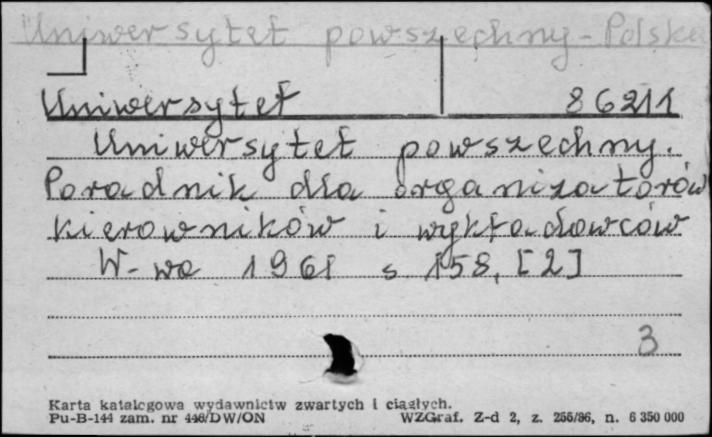 Uniwersytet powszechny - Polska
Uniwersytet 86211
Uniwersytet powszechny.
Poradnik dla organizatorów
kierowników i wykładowców
W-wa 1961 s 158, [2]
3
Karta katalogowa wydawnictw zwartych i ciągłych.
Pu-B-144 zam. nr 446/DW/ON WZGraf. Z-d 2, z. 256/86, n. 6 350 000